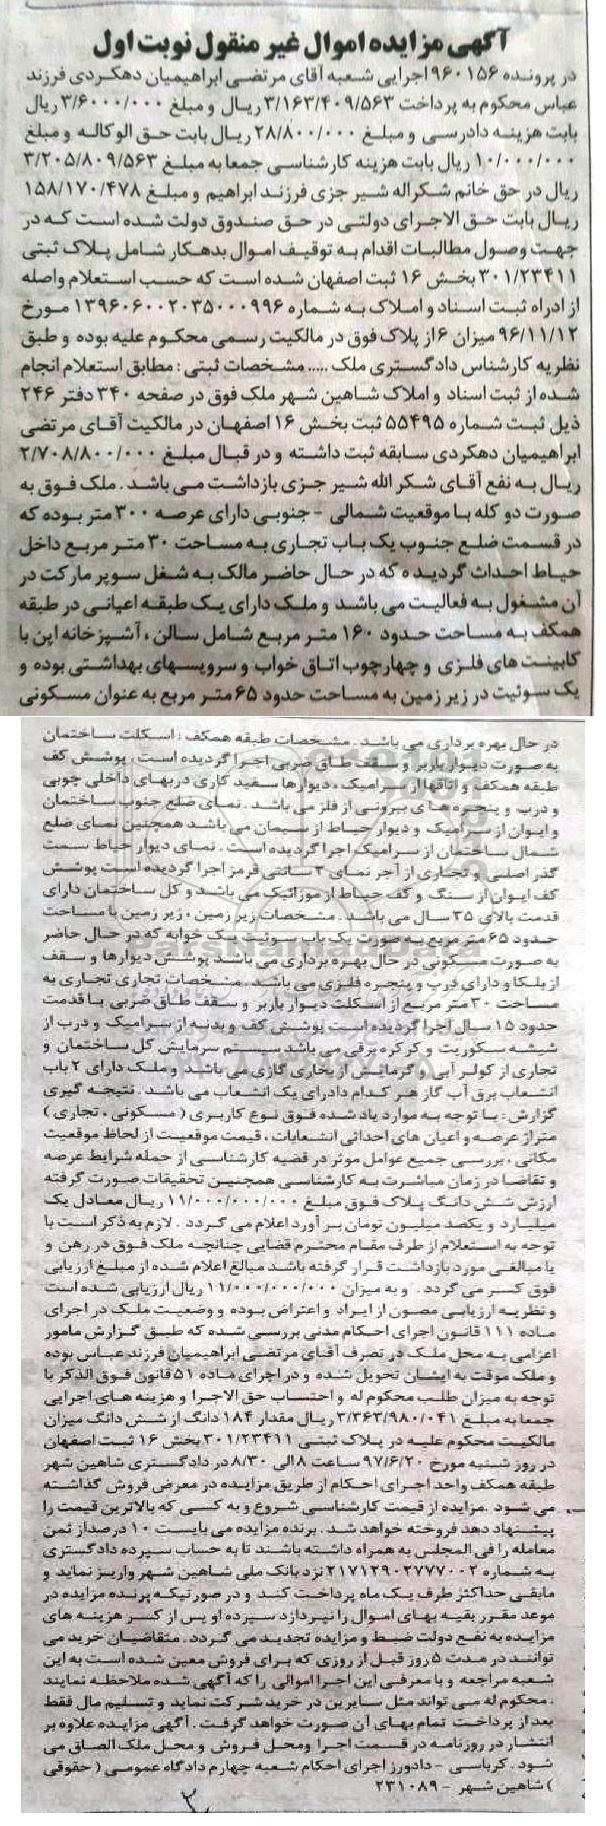 آگهی مزایده اموال غیر منقول نوبت اول
در پرونده ۹۶۰۱۵۶ اجرایی شعبه آقای مرتضی ابراهیمیان دهکردی فرزند
عباس محکوم به پرداخت ۳/۱۶۳/۴۰۹/۵۶۳ ریال و مبلغ ۳/۶۰۰۰/۰۰۰ ریال
بابت هزینه دادرسی و مبلغ ۲۸/۸۰۰/۰۰۰ ریال بابت حق الوکاله و مبلغ
۱۰/۰۰۰/۰۰۰ ریال بابت هزینه کارشناسی جمعا به مبلغ ۳/۲۰۵/۸۰۹/۵۶۳
ریال در حق خانم شکراله شیر جزی فرزند ابراهیم و مبلغ ۱۵۸/۱۷۰/۴۷۸
ریال بابت حق الاجرای دولتی در حق صندوق دولت شده است که در
جهت وصول مطالبات اقدام به توقیف اموال بدهکار شامل پلاک ثبتی
۳۰۱/۲۳۴۱۱ بخش ۱۶ ثبت اصفهان شده است که حسب استعلام واصله
از ادراه ثبت اسناد و املاک به شماره ۱۳۹۶۰۶۰۰۲۰۳۵۰۰۰۹۹۶ مورخ
۹۶/۱۱/۱۲ میزان ۶ از پلاک فوق در مالکیت رسمی محکوم علیه بوده و طبق
نظریه کارشناس دادگستری ملک ..... مشخصات ثبتی : مطابق استعلام انجام
شده از ثبت اسناد و املاک شاهین شهر ملک فوق در صفحه ۳۴۰ دفتر ۲۴۶
ذیل ثبت شماره ۵۵۴۹۵ ثبت بخش ۱۶ اصفهان در مالکیت آقای مرتضی
ابراهیمیان دهکردی سابقه ثبت داشته و در قبال مبلغ ۲/۷۰۸/۸۰۰/۰۰۰
ریال به نفع آقای شکر الله شیر جزی بازداشت می باشد . ملک فوق به
صورت دو کله با موقعیت شمالی - جنوبی دارای عرصه ۳۰۰ متر بوده که
در قسمت ضلع جنوب یک باب تجاری به مساحت ۳۰ متر مربع داخل
حیاط احداث گردیده که در حال حاضر مالک به شغل سوپر مارکت در
آن مشغول به فعالیت می باشد و ملک دارای یک طبقه اعیانی در طبقه
همکف به مساحت حدود ۱۶۰ متر مربع شامل سالن ، آشپزخانه اپن با
کابینت های فلزی و چهارچوب اتاق خواب و سرویسهای بهداشتی بوده و
یک سوئیت در زیر زمین به مساحت حدود ۶۵ متر مربع به عنوان مسکونی
در حال بهره برداری می باشد . مشخصات طبقه همکف : اسکلت ساختمان
به صورت دیوار باربر و سقف طاق ضربی اجرا گردیده است ، پوشش کف
طبقه همکف و اتاقها از سرامیک ، دیوارها سفید کاری دربهای داخلی چوبی
و درب و پنجره های بیرونی از فلز می باشد . نمای ضلع جنوب ساختمان
و ایوان از سرامیک و دیوار حیاط از سیمان می باشد همچنین نمای ضلع
شمال ساختمان از سرامیک اجرا گردیده است . نمای دیوار حیاط سمت
گذر اصلی و تجاری از آجر نمای ۳ سانتی قرمز اجرا گردیده است پوشش
کف ایوان از سنگ و کف حیاط از موزائیک می باشد و کل ساختمان دارای
قدمت بالای ۳۵ سال می باشد . مشخصات زیر زمین ، زیر زمین با مساحت
حدود ۶۵ متر مربع به صورت یک باب سوئیت یک خوابه که در حال حاضر
به صورت مسکونی در حال بهره برداری می باشد پوشش دیوارها و سقف
از بلکا و دارای درب و پنجره فلزی می باشد . مشخصات تجاری تجاری به
مساحت ۳۰ متر مربع از اسکلت دیوار باربر و سقف طاق ضربی با قدمت
حدود ۱۵ سال اجرا گردیده است پوشش کف و بدنه از سرامیک و درب از
شیشه سکوریت و کرکره برقی می باشد سیستم سرمایش کل ساختمان و
تجاری از کولر آبی و گرمایش از بخاری گازی می باشد و ملک دارای ۲ باب
انشعاب برق آب گاز هر کدام دادرای یک انشعاب می باشد . نتیجه گیری
گزارش : با توجه به موارد یاد شده فوق نوع کاربری ( مسکونی ، تجاری )
متراژ عرصه و اعیان های احداثی انشعابات ، قیمت موقعیت از لحاظ موقعیت
مکانی ، بررسی جمیع عوامل موثر در قضیه کارشناسی از جمله شرایط عرصه
و تقاضا در زمان مباشرت به کارشناسی همچنین تحقیقات صورت گرفته
ارزش شش دانگ پلاک فوق مبلغ ۱۱/۰۰۰/۰۰۰/۰۰۰ ریال معادل یک
میلیارد و یکصد میلیون تومان بر آورد اعلام می گردد . لازم به ذکر است با
توجه به استعلام از طرف مقام محترم قضایی چنانچه ملک فوق در رهن و
یا مبالغی مورد بازداشت قرار گرفته باشد مبالغ اعلام شده از مبلغ ارزیابی
فوق کسر می گردد . و به میزان ۱۱/۰۰۰/۰۰۰/۰۰۰ ریال ارزیابی شده است
و نظریه ارزیابی مصون از ایراد و اعتراض بوده و وضعیت ملک در اجرای
ماده ۱۱۱ قانون اجرای احکام مدنی بررسی شده که طبق گزارش مامور
اعزامی به محل ملک در تصرف آقای مرتضی ابراهیمیان فرزند عباس بوده
و ملک موقت به ایشان تحویل شده و در اجرای ماده ۵۱ قانون فوق الذکر با
توجه به میزان طلب محکوم له و احتساب حق الاجرا و هزینه های اجرایی
جمعا به مبلغ ۳/۳۶۳/۹۸۰/۰۴۱ ریال مقدار ۱۸۴ دانگ از شش دانگ میزان
مالکیت محکوم علیه در پلاک ثبتی ۳۰۱/۲۳۴۱۱ بخش ۱۶ ثبت اصفهان
در روز شنبه مورخ ۹۷/۶/۲۰ ساعت ۸ الی ۸/۳۰ در دادگستری شاهین شهر
طبقه همکف واحد اجرای احکام از طریق مزایده در معرض فروش گذاشته
می شود . مزایده از قیمت کارشناسی شروع و به کسی که بالاترین قیمت را
پیشنهاد دهد فروخته خواهد شد . برنده مزایده می بایست ۱۰ درصد از ثمن
معامله را فی المجلس به همراه داشته باشند تا به حساب سپرده دادگستری
به شماره ۲۱۷۱۲۹۰۲۷۷۷۰۰۲ نزد بانک ملی شاهین شهر واریز نماید و
مابقی حداکثر ظرف یک ماه پرداخت کند و در صورتیکه برنده مزایده در
موعد مقرر بقیه بهای اموال را نپردازد سپرده او پس از کسر هزینه های
مزایده به نفع دولت ضبط و مزایده تجدید می گردد . متقاضیان خرید می
توانند در مدت ۵ روز قبل از روزی که برای فروش معین شده است به این
شعبه مراجعه و با معرفی این اجرا اموالی را که آگهی شده ملاحظه نمایند
. محکوم له می تواند مثل سایرین در خرید شرکت نماید و تسلیم مال فقط
بعد از پرداخت تمام بهای آن صورت خواهد گرفت . آگهی مزایده علاوه بر
انتشار در روزنامه در قسمت اجرا و محل فروش و محل ملک الصاق می
شود . کرباسی - دادورز اجرای احکام شعبه چهارم دادگاه عمومی ( حقوقی
) شاهین شهر - ۲۳۱۰۸۹
۳